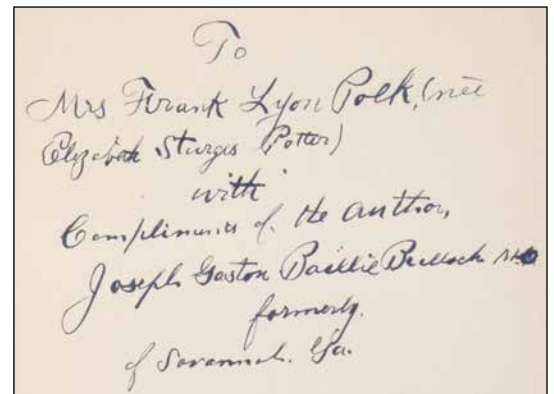 To
Mrs Frank Lyon Polk, (neé
Elizabeth Sturges Potter)
with
Compliments of the author,
Joseph Gaston Baillie Bulloch M.D.
formerly.
of Savannah. Ga.